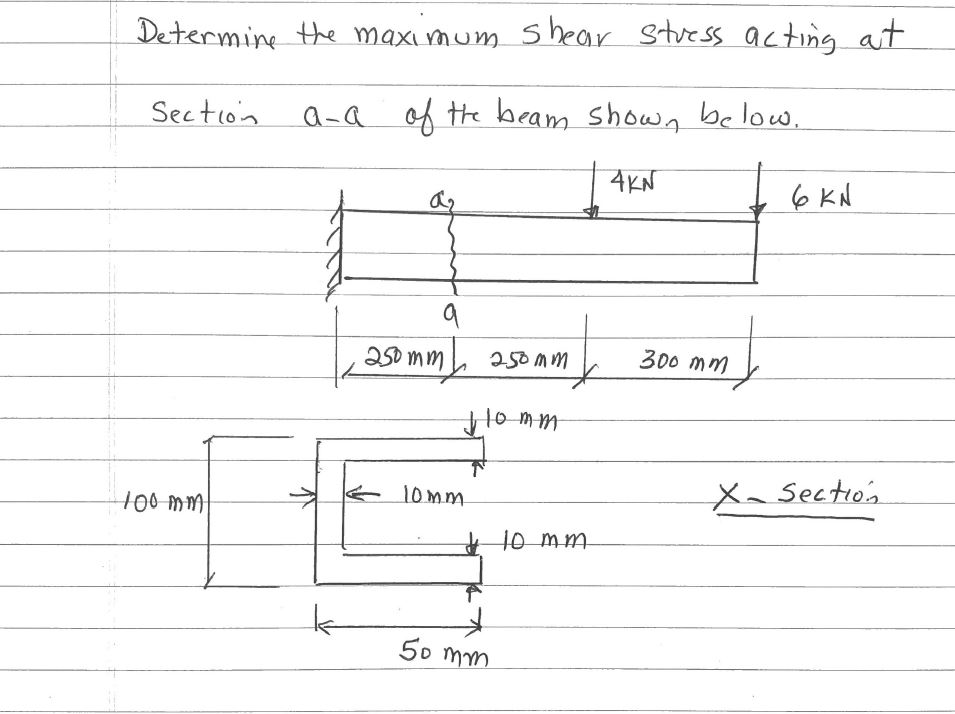 Determine the maximum shear stress acting at
Section a-a of the beam shown below.
4KN
6 KN
a
a
250 mm
250 mm
300 mm
10 mm
100 mm
10mm
X- Section
10 mm
50 mm